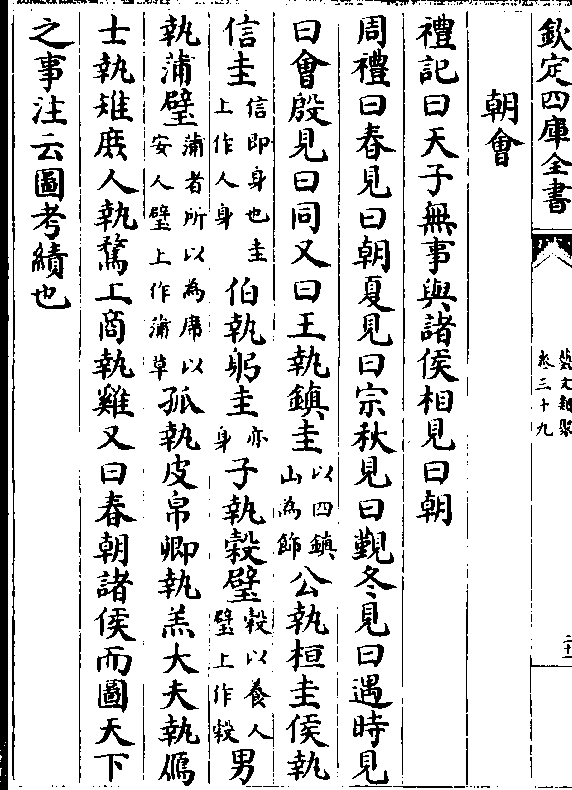 欽定四庫全書
藝文類聚
卷三十九
二十一
朝會
禮記曰天子無事與諸侯相見曰朝
周禮曰春見曰朝夏見曰宗秋見曰覲冬見曰遇時見
曰會殷見曰同又曰王執鎮圭以四鎮山為飾公執桓圭侯執
信圭信即身也圭上作人身伯執躬圭亦身子執榖璧榖以養人璧上作榖男
執蒲璧蒲者所以為席以安人璧上作蒲草孤執皮帛卿執羔大夫執鴈
士執雉庶人執鶩工商執雞又曰春朝諸侯而圖天下
之事注云圖考績也